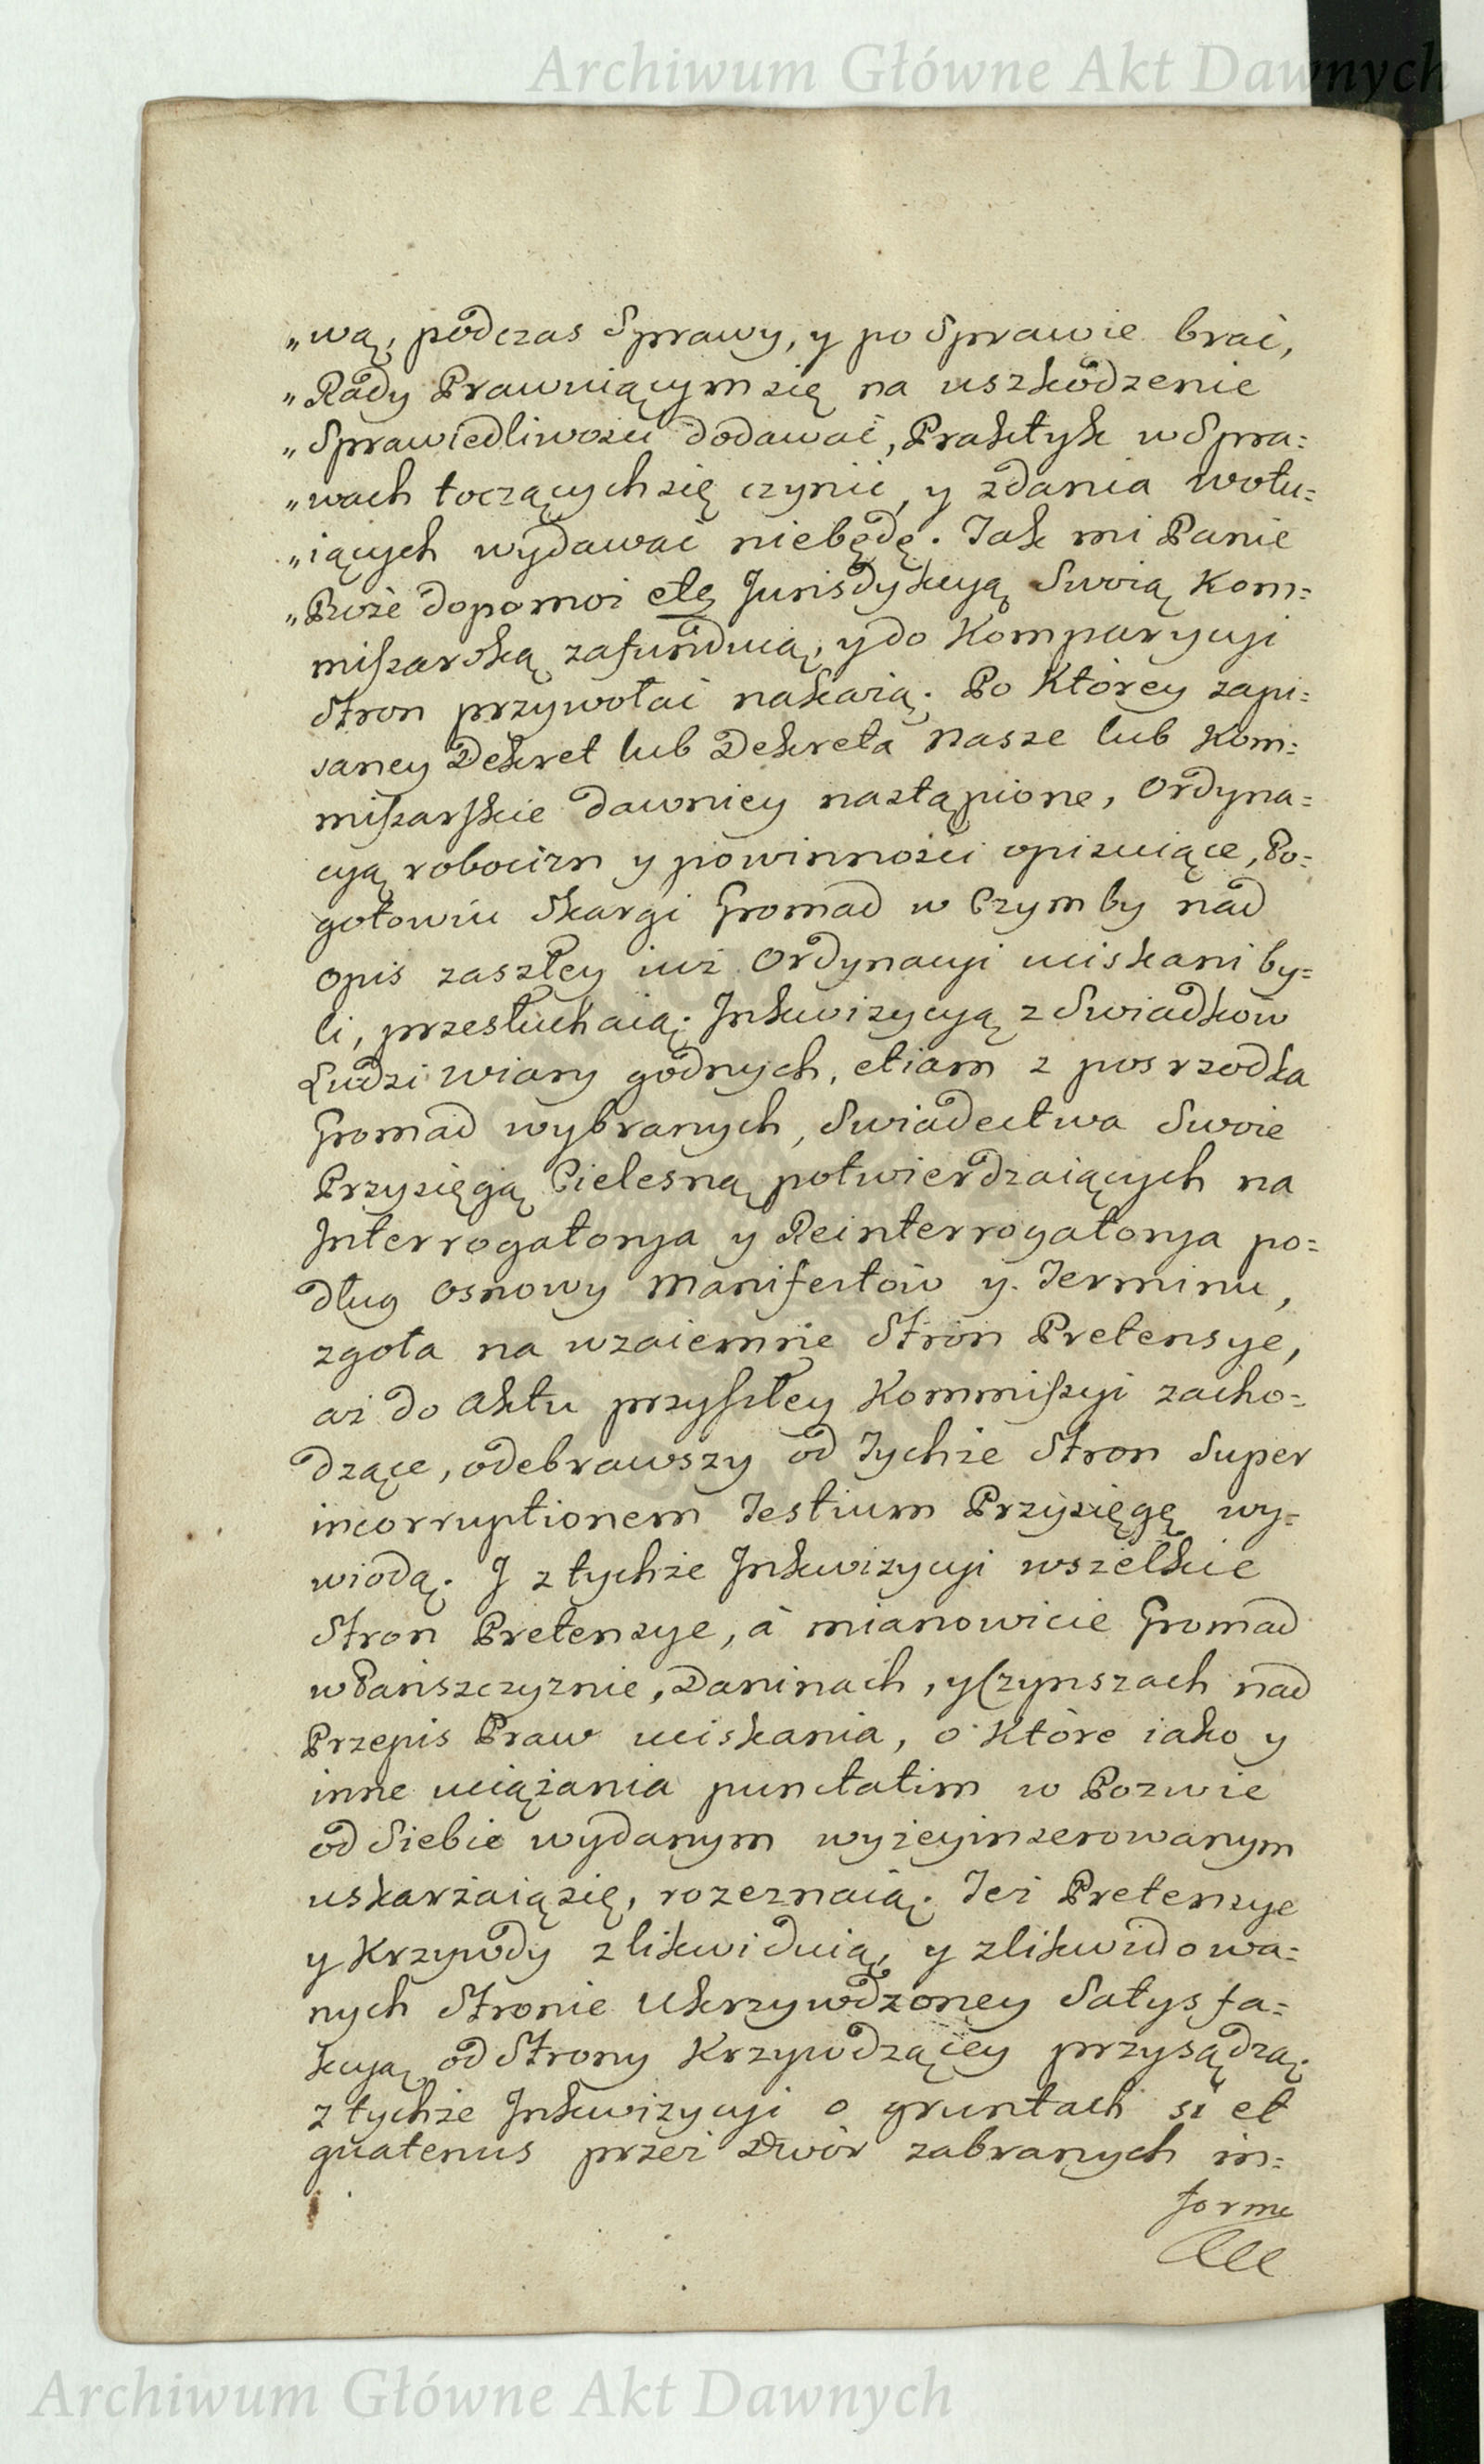 Archiwum Główne Akt Dawnych
„wą, podczas Sprawy, y po Sprawie brać,
„Rady Prawuiącym się na uszkodzenie
„Sprawiedliwości dodawać, Praktyk w Spra=
„wach toczących się czynić, y zdania wotu=
„iących wydawać niebędę. Tak mi Panie
„Boże dopomoż etc Jurisdykcyą Swoią Kom=
mißarską zafunduią, y do Komparycyi
Stron przywołać nakażą. Po Którey zapi=
saney Dekret lub Dekreta nasze lub Kom=
mißarskie dawniey nastąpione, Ordyna=
cyą robocizn y powinności opisuiące, Po=
gotowiu Skargi Gromad w Czymby nad
opis zaszłey iuż Ordynacyi uciskani by=
li, przesłuchaią. Inkwizycyą z Swiadkow
Ludzi wiary godnych, etiam z posrzodka
Gromad wybranych, Swiadectwa Swoie
Przysięgą Cielesną potwierdzaiących na
Interrogatorya y Reinterrogatorya po=
dług Osnowy Manifestów y Terminu,
zgoła na wzaiemne Stron Pretensye,
aż do Aktu przyszłey Kommißyi zacho=
dzące, odebrawszy od Tychże Stron Super
incorruptionem Testium Przysięgę wy=
wiodą. I z tychże Inkwizycyi wszelkie
Stron Pretensye, à mianowicie Gromad
w Pańszczyznie, Daninach, y Czynszach nad
Przepis Praw uciskania, o Które iako y
inne uciążania punctatim w Pozwie
od Siebie wydanym wyżeyinserowanym
uskarżaią się, rozeznaią. Też Pretensye
y Krzywdy zlikwiduią, y zlikwidowa=
nych Stronie Ukrzywdzoney Satysfa=
kcyą od Strony Krzywdzącey przysądzą.
z tychże Inkwizycyi o gruntach si et
quatenus przez Dwór zabranych in=
forme